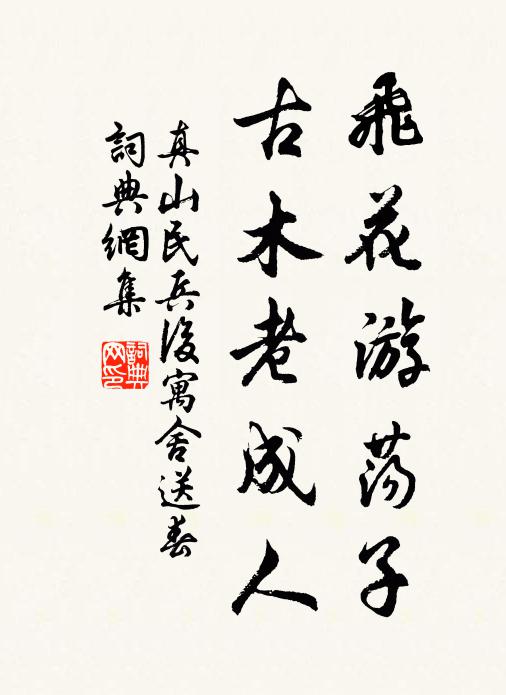 飛花游蕩子
古木老成人
真山民兵後寓舍送春
詞典網集
詞典
网印